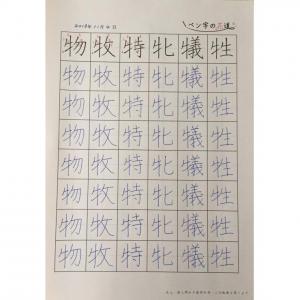 2018年11月4日
ペン字の正道
物牧特牝犠牲
物牧特牝犠牲
物牧特牝犠牲
物牧特牝犠牲
物牧特牝犠牲
物牧特牝犠牲
物牧特牝犠牲
物牧特牝犠牲